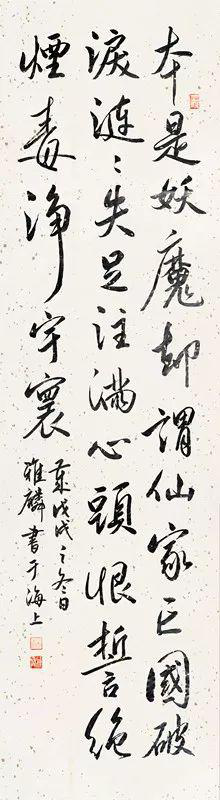 本是妖魔却謂仙家亡國破
淚漣〻失足注滿心頭恨誓絕
煙毒淨宇寰
歲戊戌之冬日
雅麟書于海上